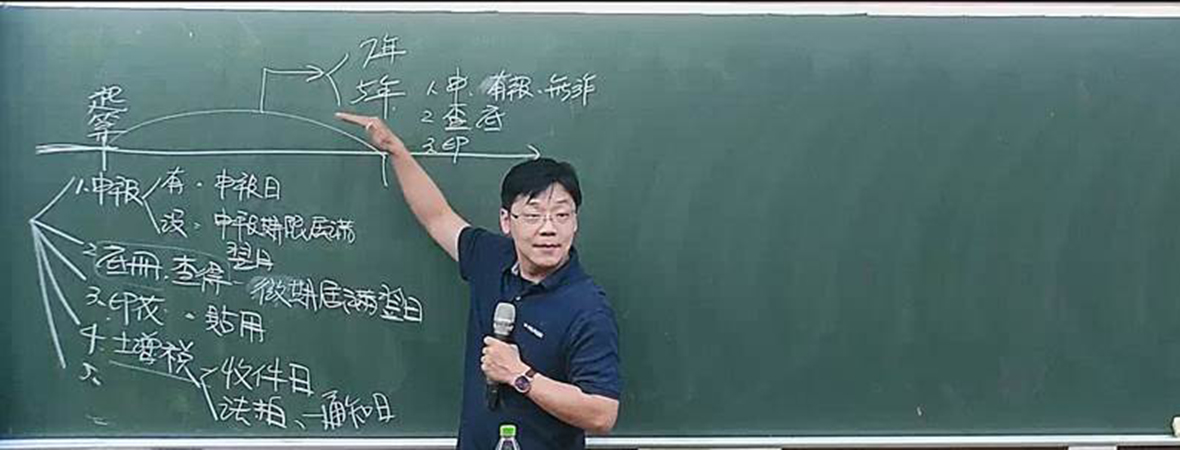 7年
5年 1.申.有報.無詐
2.查底
3.印
起算
1.申報 有.申報日
沒.申報期限屆滿翌日
2.底冊.查得-徵期屆滿翌日
3.印花.貼用
4.土增稅 收件日
法拍、通知日
5.